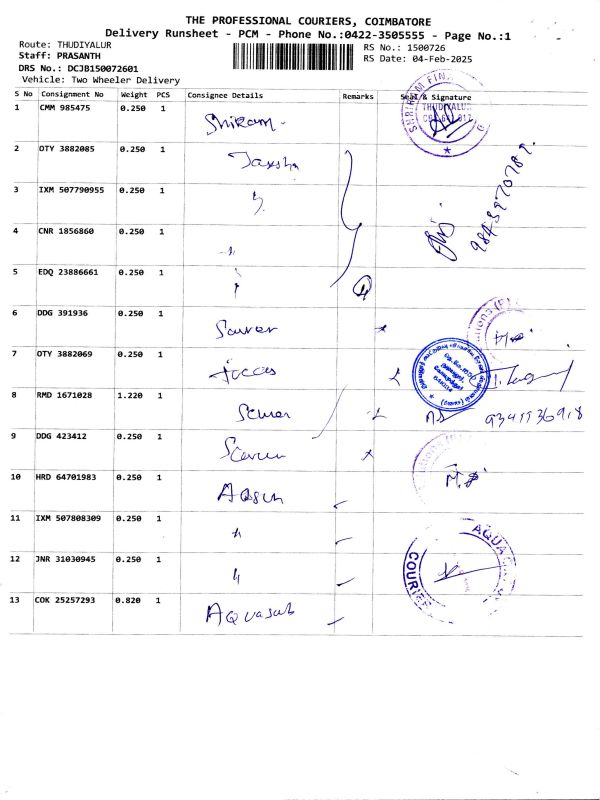 THE PROFESSIONAL COURIERS, COIMBATORE
Delivery Runsheet - PCM - Phone No.:0422-3505555 - Page No.:1
Route: THUDIYALUR
Staff: PRASANTH
DRS No.: DCJB150072601
Vehicle: Two Wheeler Delivery
RS No.: 1500726
RS Date: 04-Feb-2025
S No Consignment No Weight PCS Consignee Details Remarks Seal & Signature
1 CMM 985475 0.250 1 Shriram
SHRIRAM FINA
THUDIYALUR
2 OTY 3882085 0.250 1
3 IXM 507790955 0.250 1
9843970789
4 CNR 1856860 0.250 1
5 EDQ 23886661 0.250 1
6 DDG 391936 0.250 1
7 OTY 3882069 0.250 1
8 RMD 1671028 1.220 1
9 DDG 423412 0.250 1
10 HRD 64701983 0.250 1
11 IXM 507808309 0.250 1
12 JNR 31030945 0.250 1
AQUA
COURIER
13 COK 25257293 0.820 1 Aquasub